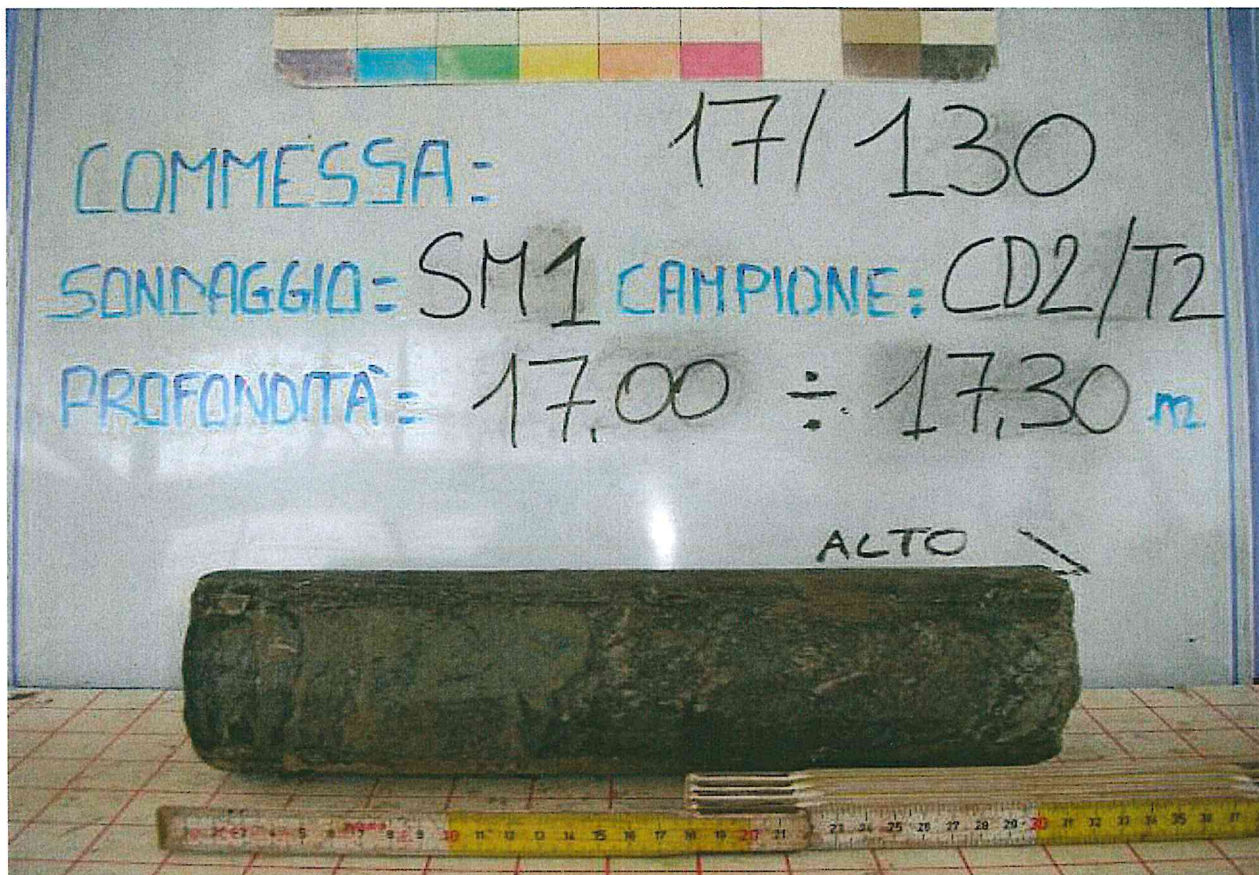 COMMESSA: 17/130
SONDAGGIO: SM1 CAMPIONE: CD2/T2
PROFONDITÀ: 17,00 ÷ 17,30 m
ALTO
10 11 12 13 14 15 16 17 18 19 20 21 23 24 25 26 27 28 29 30 31 32 33 34 35 36 37